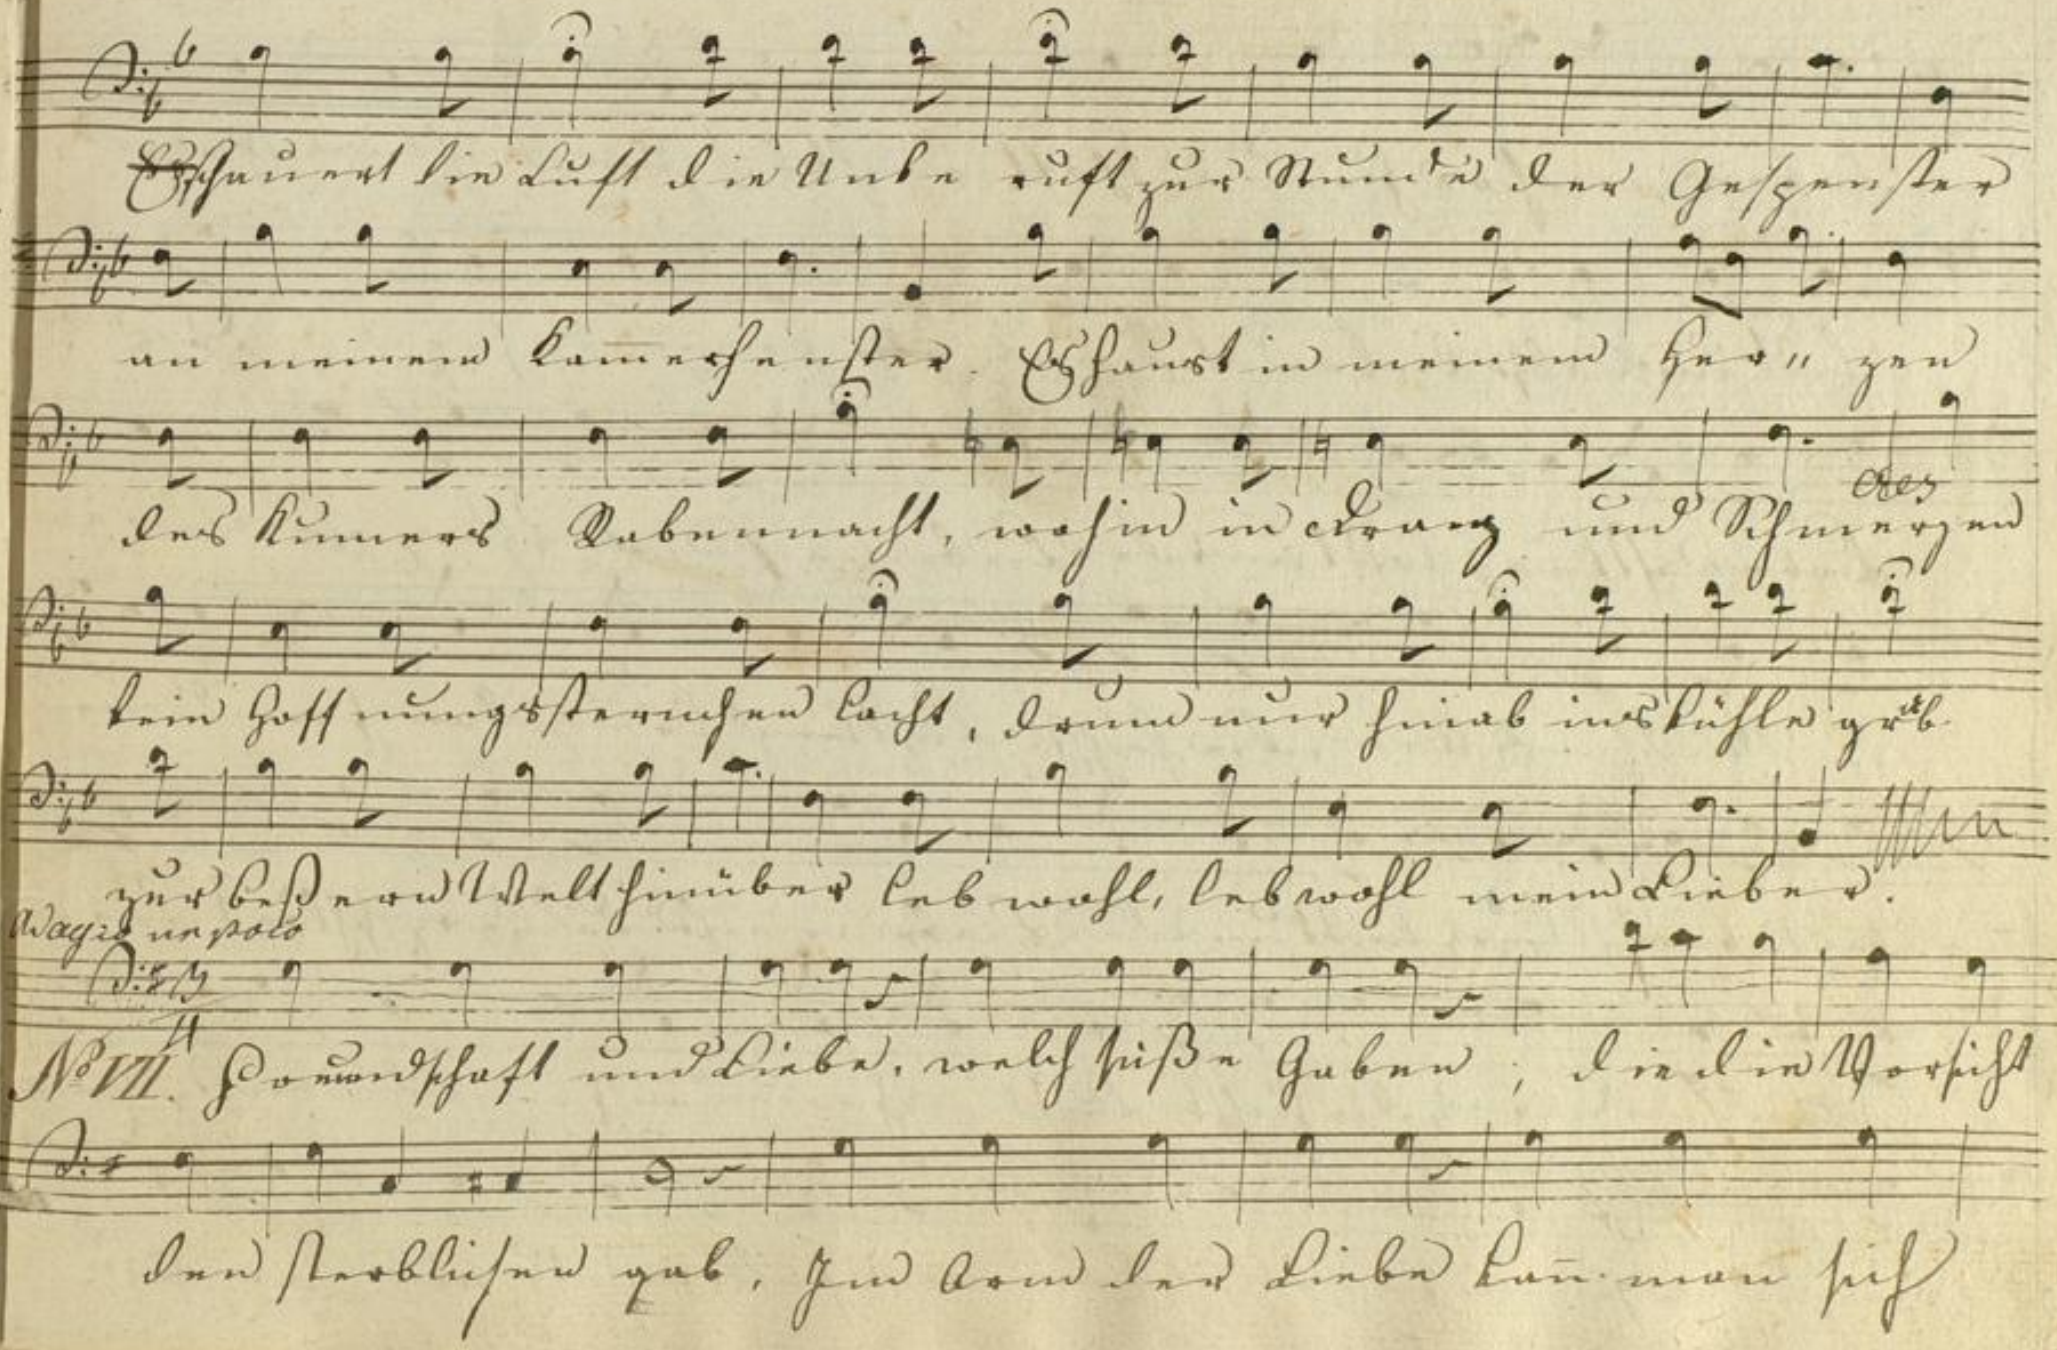 Es schauert die Luft die Unke ruft zur Stunde der Gespenster
an meinem Kam̄erfenster. Es haust in meinem Her„ zen
des Kum̄ers Rabennacht, wohin in Drang und Schmerzen
kein Hoffnungssternchen lacht, drum nur hinab ins kühle grab
zur beßern Welt hinüber leb wohl, leb wohl mein Lieber.
Adagio un poco
No VII. Freundschaft und Liebe, welch süße Gaben, die die Vorsicht
den sterblichen gab, Im Arm der Liebe kan̄ man sich